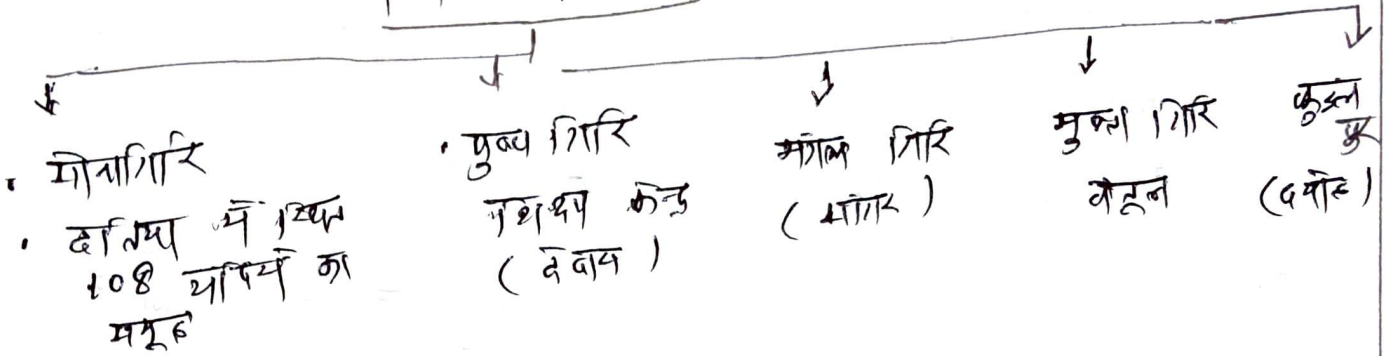 सोनागिरि
दतिया में स्थित
108 मंदिरों का
समूह
पुष्प गिरि
केन्द्र
(देवास)
मंगल गिरि
(सागर)
मुक्ता गिरि
बैतूल
कुंडल
पुर
(दमोह)